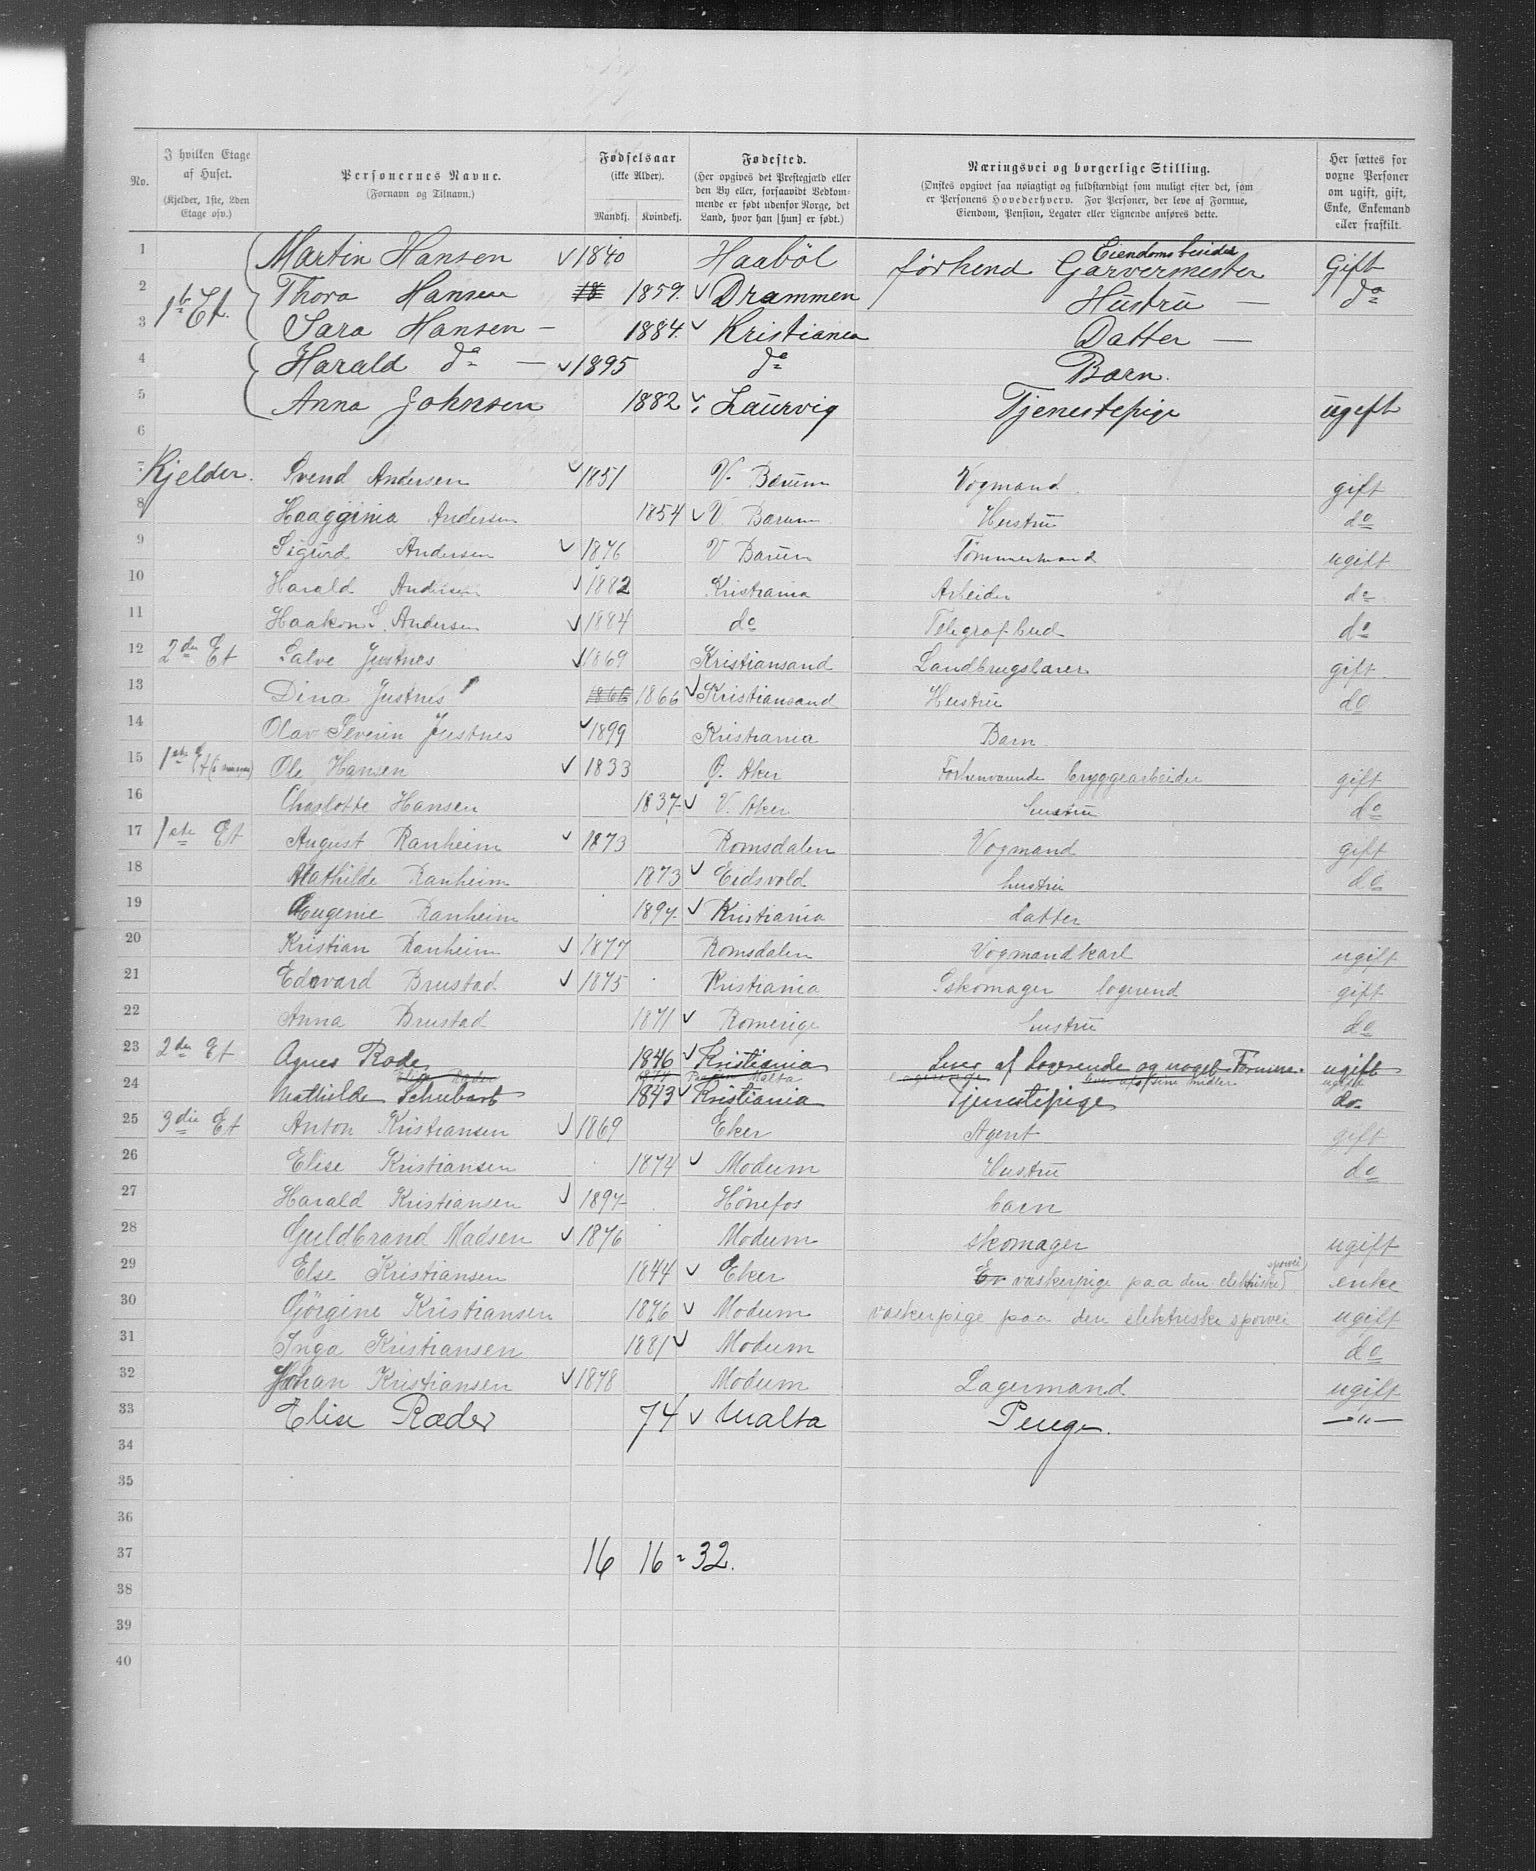 No. I hvilken Etage af Huset. (Kjelder, 1ste, 2den Etage osv.) Personernes Navne. (Fornavn og Tilnavn.) Fødselsaar (ikke Alder). Mandkj. Kvindekj. Fødested. (Her opgives det Prestegjæld eller den By eller, forsaavidt Vedkommende er født udenfor Norge, det Land, hvor han [hun] er født.) Næringsvei og borgerlige Stilling. (Ønskes opgivet saa nøiagtigt og fuldstændigt som muligt efter det, som er Personens Hovederhverv. For Personer, der leve af Formue, Eiendom, Pension, Legater eller Lignende anføres dette. Her sættes for voxne Personer om ugift, gift, Enke, Enkemand eller fraskilt.
1 Martin Hansen 1840 Haaböl förhend Garvermester Eiendomsbesider Gift
2 1ste Et. Thora Hansen 18 1859. Drammen Hustru — do
3 Sara Hansen — 1884. Kristiania Datter —
4 Harald do — 1895 do Barn.
5 Anna Johnsen 1882 Laurvig Tjenestepige ugift
6
7 Kjelder. Svend Andersen 1851 V. Bærum Vogmand gift
8 Haagginia Andersen 1854 V Bærum Hustru do
9 Sigurd Andersen 1876 V Bærum Tömmermand ugift
10 Harald Andersen 1882 Kristiania Arbeider do
11 Haakon S. Andersen 1884 do Telegrafbud do
12 2den Et Salve Justnes 1869 Kristiansand Landbrugslærer gift
13 Dina Justnes 1866 1866 Kristiansand Hustru do
14 Olav Severin Justnes 1899 Kristiania Barn
15 1ste Et Ole Hansen 1833 Ø. Aker Forhenværende bryggearbeider gift
16 Charlotte Hansen 1837 V. Aker hustru do
17 1ste Et August Ranheim 1873 Romsdalen Vogmand gift
18 Mathilde Ranheim 1873 Eidsvold hustru do
19 Eugenie Ranheim 1897 Kristiania datter
20 Kristian Ranheim 1877 Romsdalen Vogmandkarl ugift
21 Edevard Brustad 1875 Kristiania Skomager logerend gift
22 Anna Brustad 1871 Romerige hustru do
23 2den Et Agnes Rode 1846 Kristiania Lever af Logerende og noget Formue. ugift
Elise Ræder 1874 Malta logerende lever af egne midler ugift
24 Mathilde Schubart 1843 Kristiania Tjenestepige do
25 3die Et Anton Kristiansen 1869 Eker Agent gift
26 Elise Kristiansen 1874 Modum Hustru do
27 Harald Kristiansen 1897 Hönefos barn
28 Guldbrand Madsen 1876 Modum skomager ugift
29 Else Kristiansen 1844 Eker Er vaskerpige paa den elektriske sporvei enke
30 Görgine Kristiansen 1876 Modum vaskerpige paa den elektriske sporvei ugift
31 Inga Kristiansen 1881 Modum do
32 Johan Kristiansen 1878 Modum Lagermand ugift
33 Elise Ræder 74 Malta Penge. —"—
34
35
36
37 16 16 = 32.
38
39
40